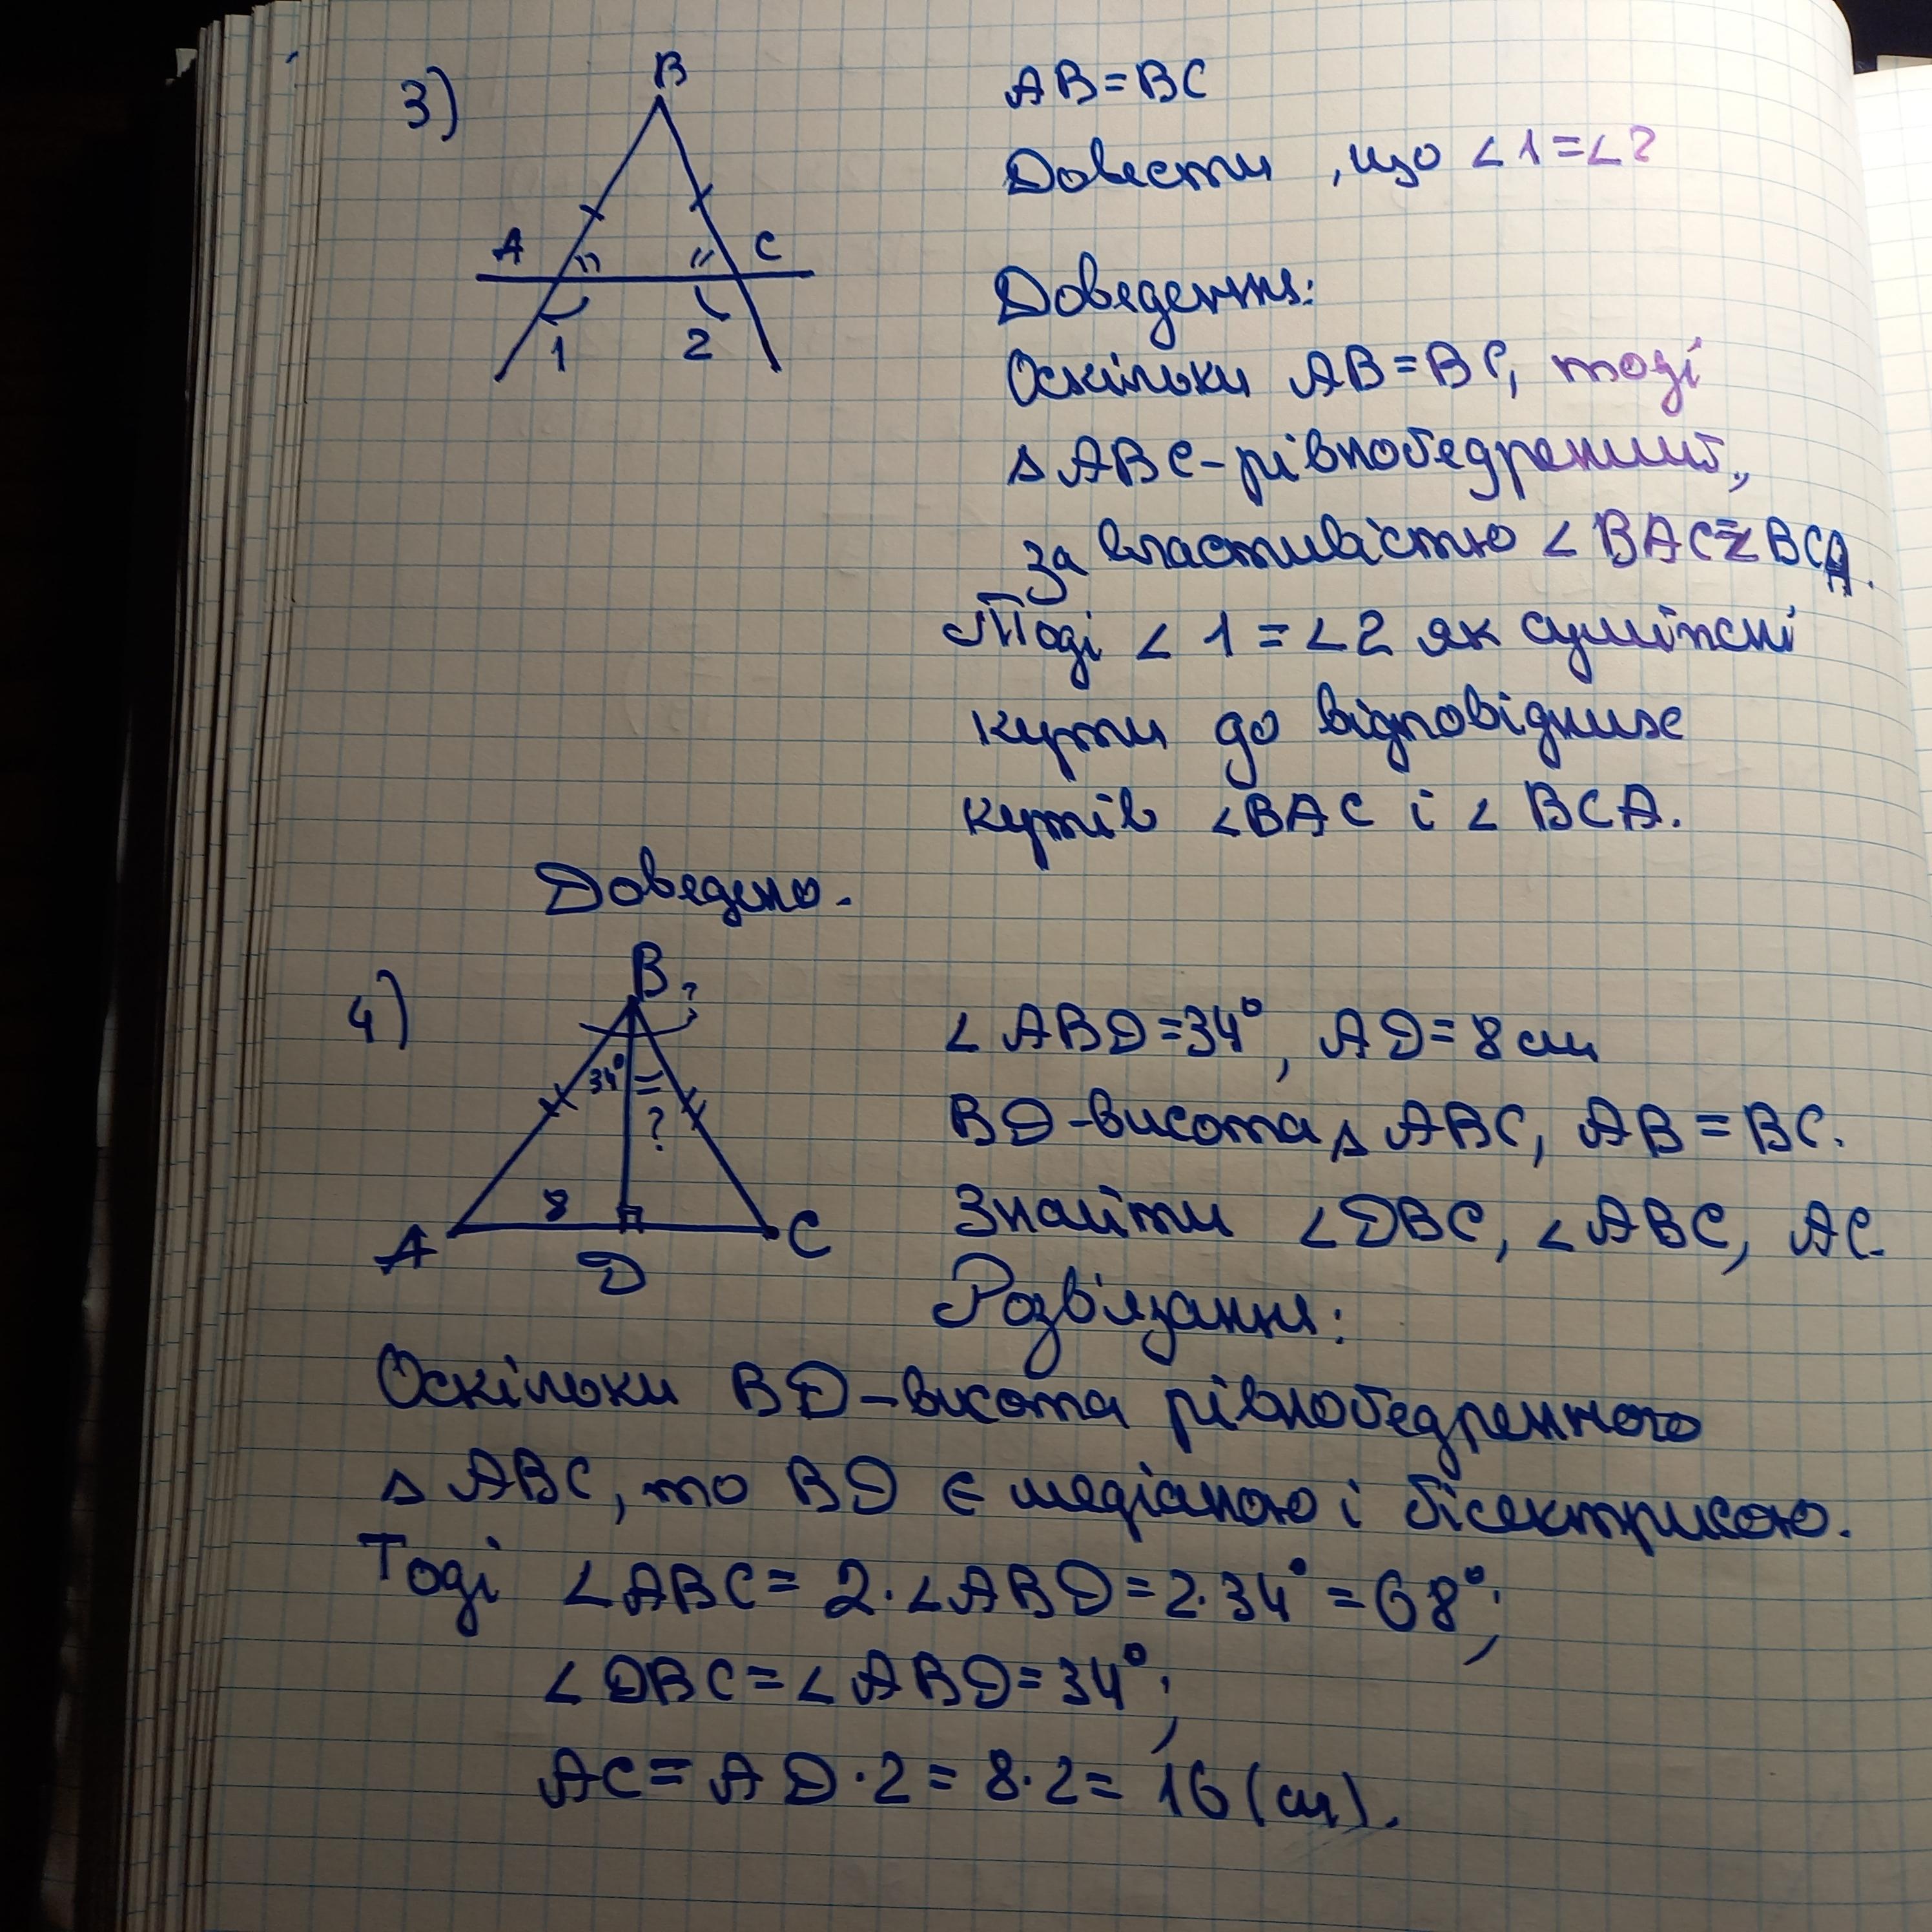 3)
B
AB=BC
Довести, що ∠1=∠2
A
C
1
2
Доведення:
Оскільки AB=BC, тоді
△ABC-рівнобедрений,
за властивістю ∠BAC=∠BCA.
Тоді ∠1=∠2 як суміжні
кути до відповідних
кутів ∠BAC і ∠BCA.
Доведено.
4)
B ?
34°
?
8
A
C
D
∠ABD=34°, AD=8см
BD-висота △ABC, AB=BC.
Знайти ∠DBC, ∠ABC, AC.
Розв'язання:
Оскільки BD-висота рівнобедренного
△ABC, то BD є медіаною і бісектрисою.
Тоді ∠ABC=2·∠ABD=2·34°=68°;
∠DBC=∠ABD=34°;
AC=AD·2=8·2=16(см).